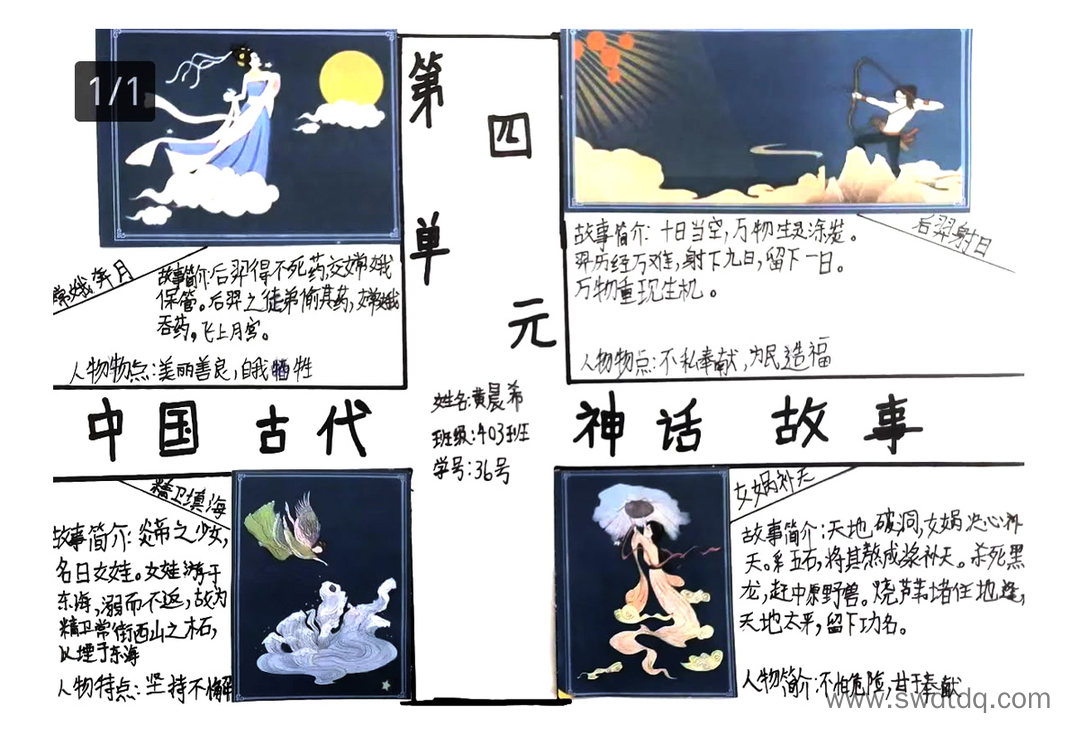 1/1
第
四
单
元
嫦娥奔月
故事简介:后羿得不死药,交嫦娥
保管。后羿之徒弟偷其药,嫦娥
吞药,飞上月宫。
人物物点:美丽善良,自我牺牲
后羿射日
故事简介:十日当空,万物生灵涂炭。
羿历经万难,射下九日,留下一日。
万物重现生机。
人物物点:不私奉献,为民造福
中国古代
神话故事
姓名:黄晨希
班级:403班
学号:36号
精卫填海
故事简介:炎帝之少女,
名曰女娃。女娃游于
东海,溺而不返,故为
精卫常衔西山之木石,
以堙于东海
人物特点:坚持不懈
女娲补天
故事简介:天地破洞,女娲决心补
天。炼五石,将其熬成浆补天。杀死黑
龙,赶中原野兽。烧芦苇堵住地缝,
天地太平,留下功名。
人物简介:不怕危险,甘于奉献
www.swdtdq.com